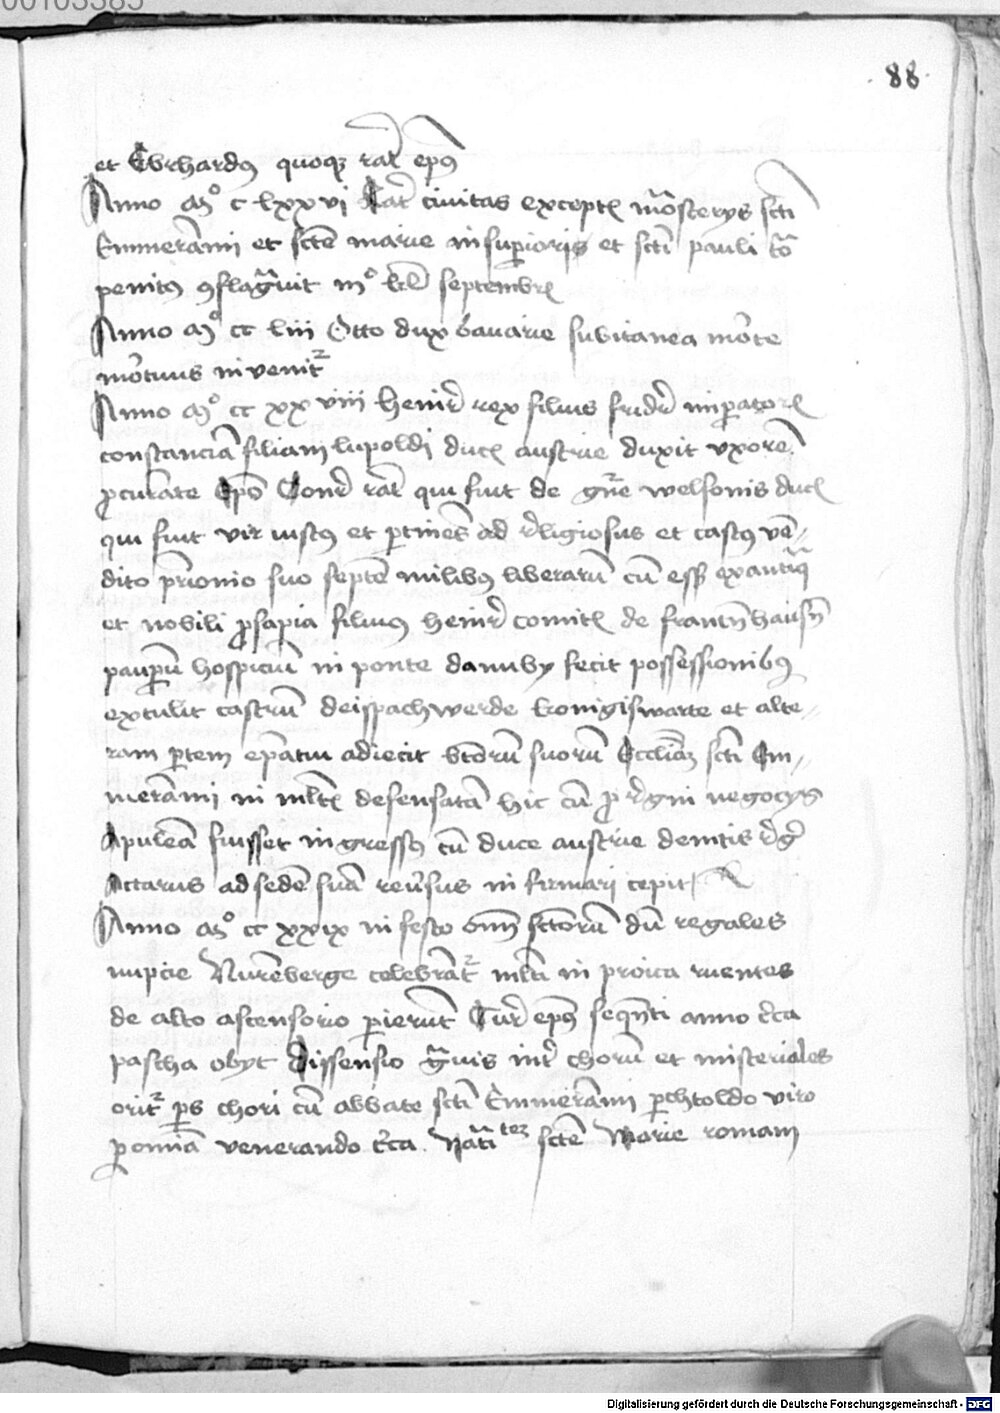 00103385
88
et Ebrhardus quoque rat epus
Anno mo c lxxvi Rat civitas exceptis monsterys scti
Emmerami et scte marie in superioris et scti pauli
penitus conflagravit iiio kl septembris
Anno mo cc liii Otto dux bavarie subitanea morte
mortuus invenitr
Anno mo cc xxviii heinr rex filius fridr imperatoris
constancia filiam lupoldi ducis austrie duxit uxore
procurate Epo Conr rat qui fuit de gne welfonis ducis
qui fuit vir iustus et pertines ad religiosus et castus ven-
dito prionio suo septe milibus librarum cu esset ex antiqua
et nobili prosapia filius heinr comitis de
pauperu hospiciu in ponte danuby fecit possessionibus
extulit castru deispach werde konigiswarte et alte-
ram partem epatui adiecit suoru Ecclia scti Em-
merami in multis defensata hic cu pro regni negocys
Apulea fuisset ingressus cu duce austrie
ad sede sua reversus infirmari cepit
Anno mo cc xxix in festo omn sctoru du regales
nupcie Nurenberge celebrantr multi in ruentes
de alto ascensorio perierunt Cunr epus sequenti anno circa
pascha obyt Dissensio gravis inter choru et misteriales
oritr pars chori cu abbate scti Emmerami perchtoldo viro
per omnia venerando circa Natitez scte Marie romam
Digitalisierung gefördert durch die Deutsche Forschungsgemeinschaft - DFG